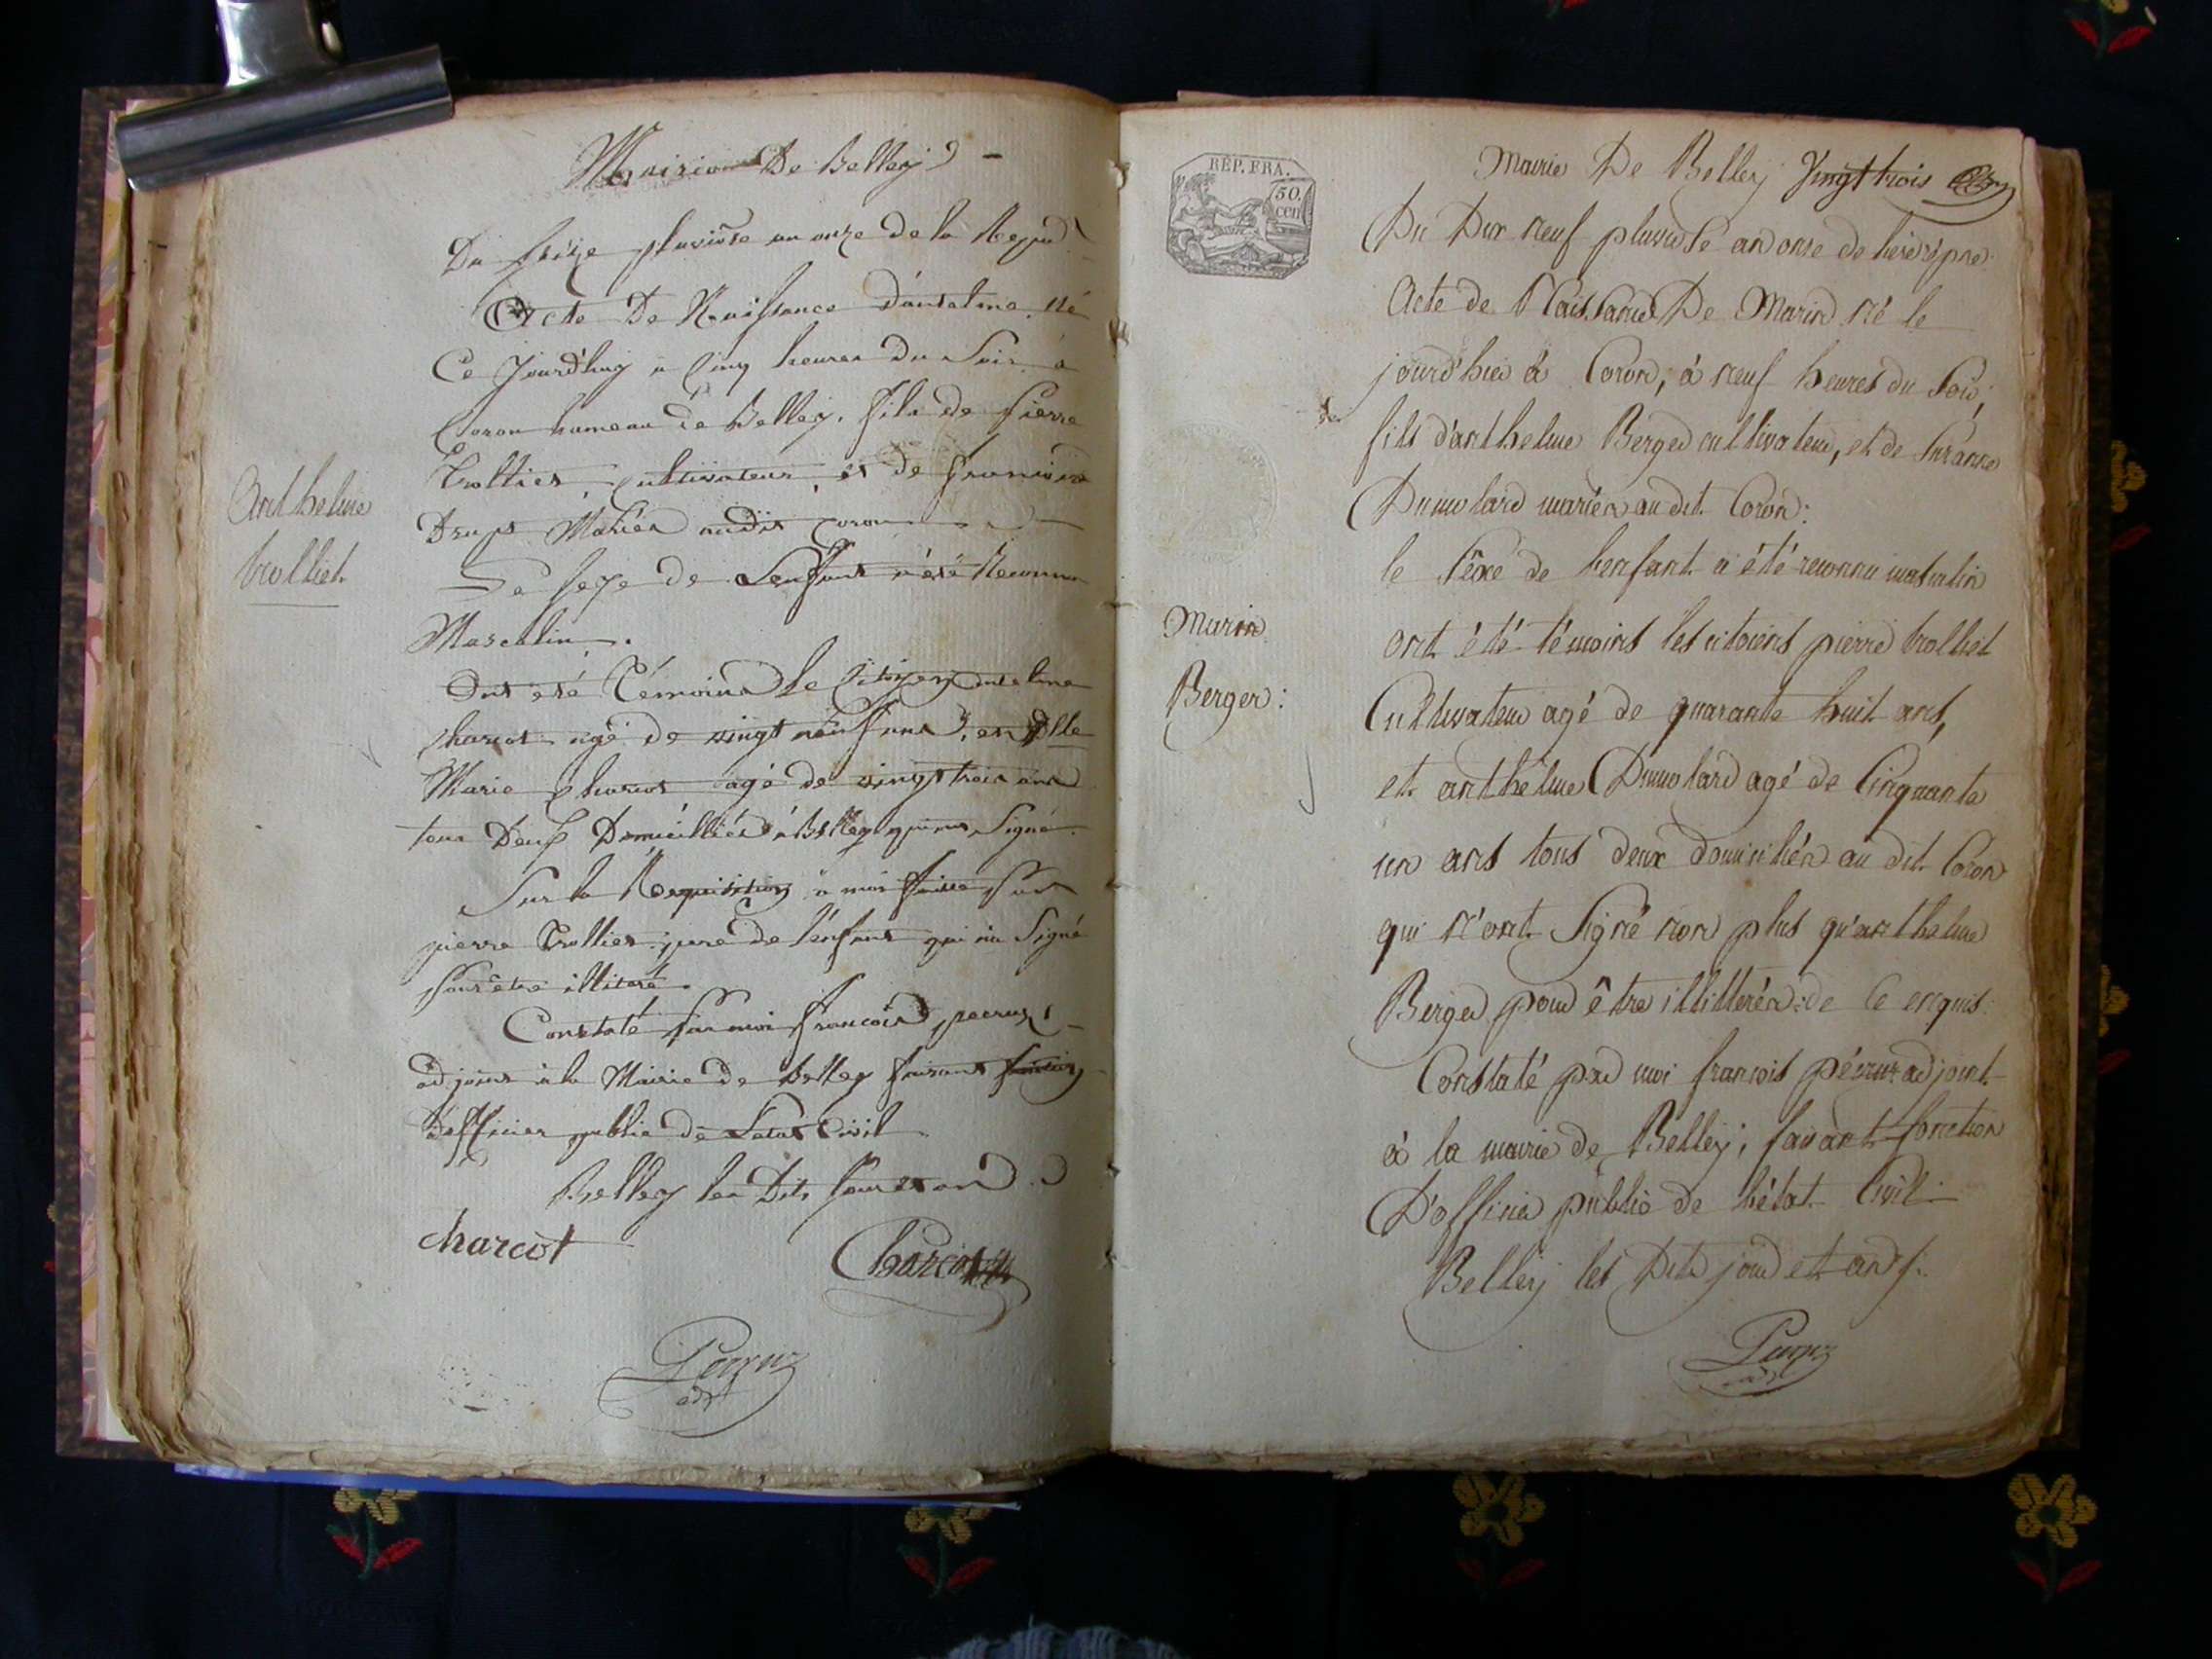 Mairie De Belley
Du seize pluviôse an onze de la Repub
Acte De Naissance d'antelme. Né
Ce Jourd'huy a Cinq heures du Soir a
Coron hameau de Belley, fils de pierre
Trolliet, Cultivateur, et de francoise
Mariés audit Coron
Le sexe de Lenfant a été Reconnu
Masculin.
Ont été Témoins le Citoyen antelme
charcot agé de vingt neuf ans, et Dlle
Marie charcot agé de vingt trois ans
tous Deux Domicilliés à Belley qui ont Signé.
Sur la Requisition a moi faitte par
pierre Trollier pere de l'enfant qui n'a Signé
pour être illiteré.
Constaté par moi francois pecruz
adjoint à la Mairie de Belley faisant fonction
d'officier public de Letat Civil
Belley les Dits jour et an
charcot
Charcot
adjt
anthelme
trolliet.
REP. FRA.
50.
cen
Mairie De Belley Vingt trois
Du Dix neuf pluviose an onze de l'ere repne
Acte de Naissance De Marin né le
jourd'hier à Coron, à neuf heures du Soir,
fils d'anthelme Berger cultivateur, et de Suzanne
Dumolard mariés au dit Coron:
le Séxe de l'enfant a été reconnu masculin
ont été témoins les citoiens pierre trolliet
Cultivateur agé de quarante huit ans,
et anthelme Dumolard agé de Cinquante
un ans tous deux domiciliés au dit Coron
qui n'ont Signé non plus qu'anthelme
Berger pour être illitterés: de Ce enquis:
Constaté par moi francois pécruz adjoint
à la mairie de Belley, faisant fonction
D'officier public de l'état Civil
Belley les Dits jour et an
adjt
Marin
Berger: